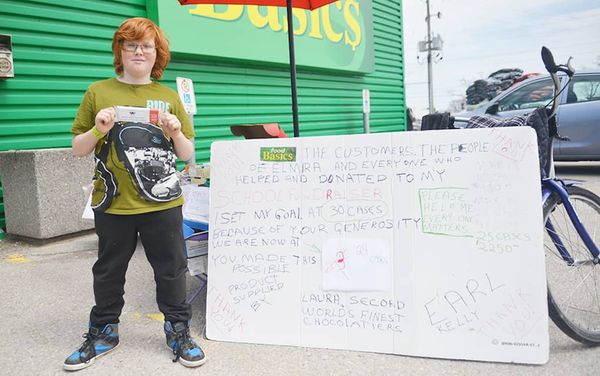 BASICS
RIDE
Food
BASICS
THE CUSTOMERS, THE PEOPLE
OF ELMIRA AND EVERYONE WHO
HELPED AND DONATED TO MY
SCHOOL FUNDRAISER
I SET MY GOAL AT 30 CASES
BECAUSE OF YOUR GENEROSITY
WE ARE NOW AT
YOU MADE THIS
POSSIBLE
PRODUCT
SUPPLIED
BY
LAURA SECORD
WORLD'S FINEST
CHOCOLATIERS
THANK
YOU
PLEASE
HELP ME
EVERY ONE
MATTERS
25 CASES
EARL
KELLY
THANK
YOU